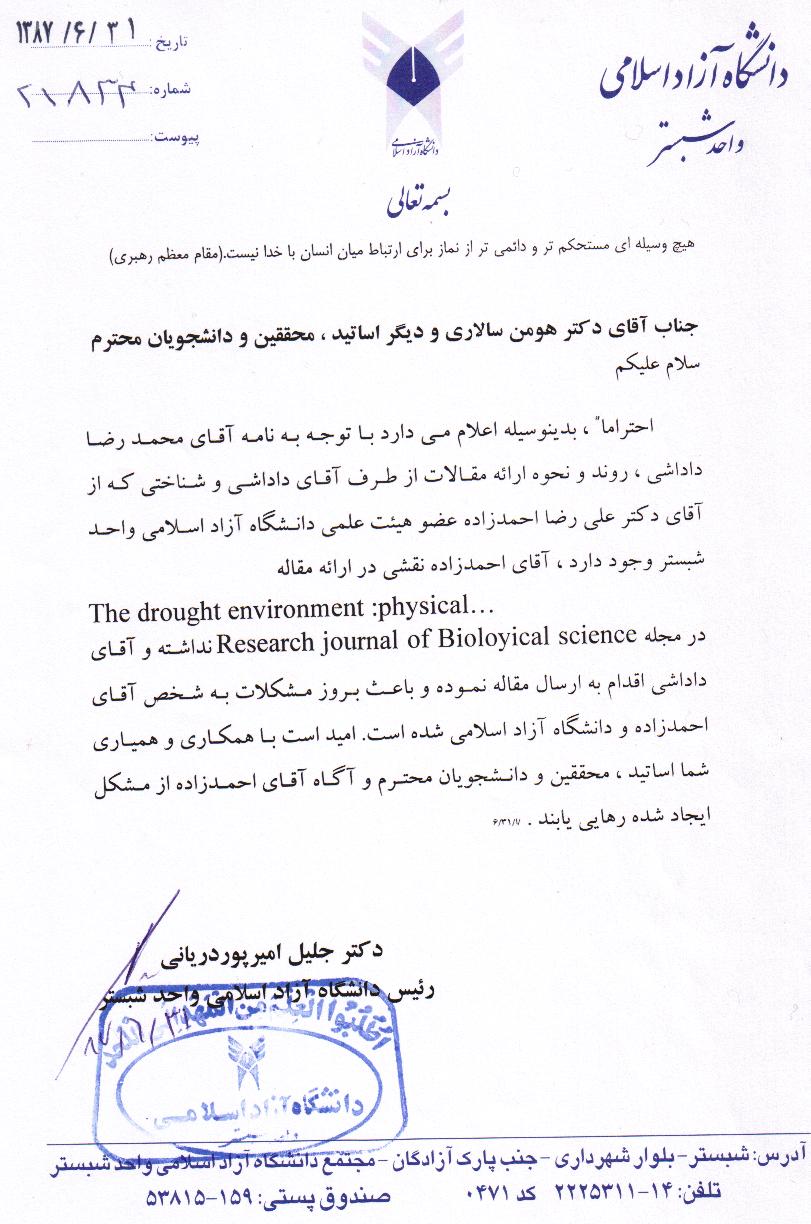 دانشگاه آزاد اسلامی
واحد شبستر
دانشگاه آزاد اسلامی
تاریخ: ۱۳۸۷/۶/۳۱
شماره: ۲۱۸۳۴
پیوست:
بسمه تعالی
هیچ وسیله ای مستحکم تر و دائمی تر از نماز برای ارتباط میان انسان با خدا نیست.(مقام معظم رهبری)
جناب آقای دکتر هومن سالاری و دیگر اساتید ، محققین و دانشجویان محترم
سلام علیکم
احتراما" ، بدینوسیله اعلام می دارد با توجه به نامه آقای محمد رضا
داداشی ، روند و نحوه ارائه مقالات از طرف آقای داداشی و شناختی که از
آقای دکتر علی رضا احمدزاده عضو هیئت علمی دانشگاه آزاد اسلامی واحد
شبستر وجود دارد ، آقای احمدزاده نقشی در ارائه مقاله
The drought environment :physical…
در مجله Research journal of Bioloyical science نداشته و آقای
داداشی اقدام به ارسال مقاله نموده و باعث بروز مشکلات به شخص آقای
احمدزاده و دانشگاه آزاد اسلامی شده است. امید است با همکاری و همیاری
شما اساتید ، محققین و دانشجویان محترم و آگاه آقای احمدزاده از مشکل
ایجاد شده رهایی یابند . ۶/۳۱/۷
دکتر جلیل امیرپوردریانی
رئیس دانشگاه آزاد اسلامی واحد شبستر
۸۷/۶/۳۱
اُطْلُبُوا الْعِلْمَ مِنَ الْمَهْدِ اِلَی اللَّحْدِ
دانشگاه آزاد اسلامی
واحد شبستر
آدرس: شبستر – بلوار شهرداری – جنب پارک آزادگان – مجتمع دانشگاه آزاد اسلامی واحد شبستر
تلفن: ۱۴–۲۲۲۵۳۱۱ کد ۰۴۷۱ صندوق پستی: ۱۵۹–۵۳۸۱۵